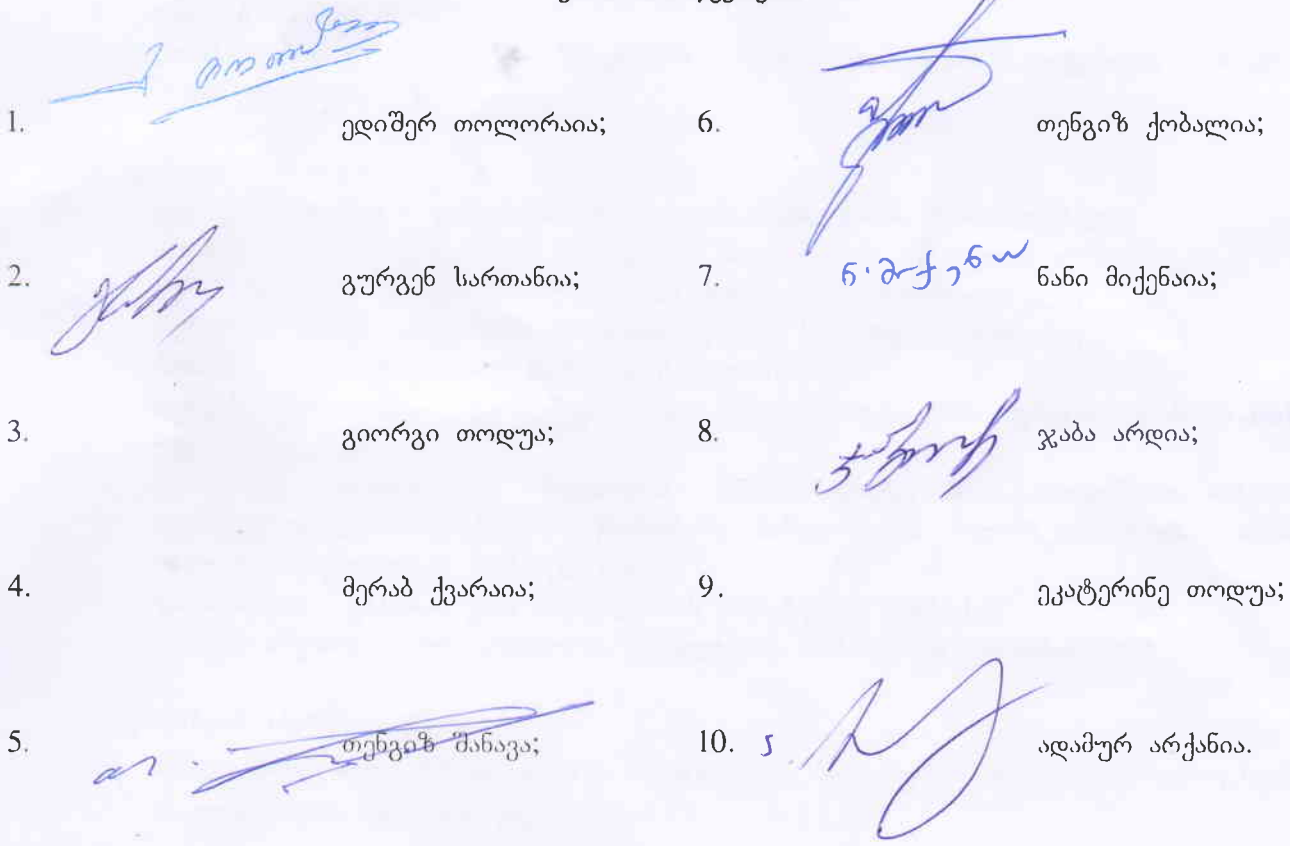 1. ედიშერ თოლორაია;
2. გურგენ სართანია;
3. გიორგი თოდუა;
4. მერაბ ქვარაია;
5. თენგიზ შანავა;
6. თენგიზ ქობალია;
7. ნანი მიქენაია;
8. ჯაბა არდია;
9. ეკატერინე თოდუა;
10. ადამურ არქანია.